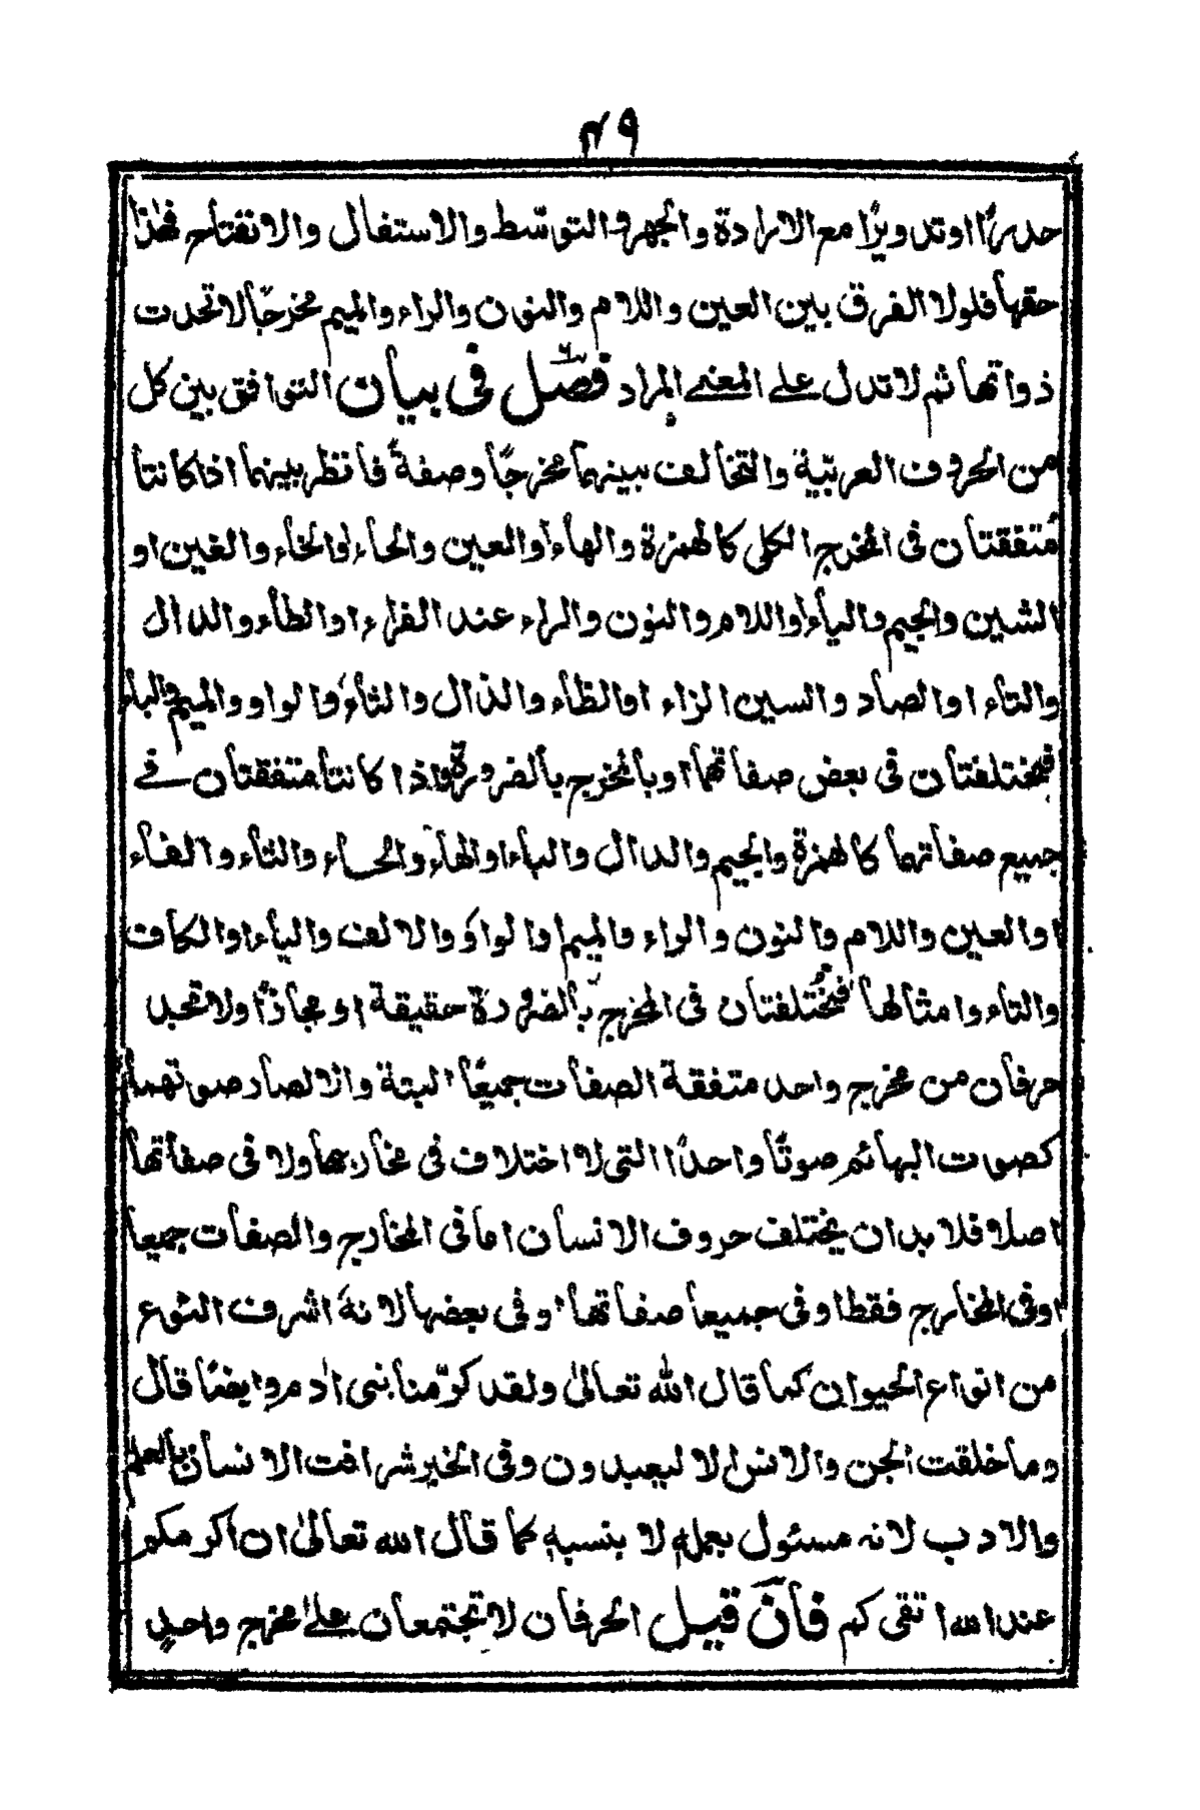 ٤٩
حدرًا اوتدويرًا مع الارادة والجهر والتوسّط والاستفال والانفتاح فهٰذا
حقها فلولا الفرق بين العين واللام والنون والراء والميم مخرجًا لاتحدت
ذواتها ثم لاتدل علے المعنے المراد فصل فى بيان التوافق بين كل
من الحروف العربيّة والتخالف بينهما مخرجًا وصفةً فانظر بينهما اذا كانتا
مُتفقتان فى المخرج الكلى كالهمزة والهاء اوالعين والحاء اوالخاء والغين او
الشين والجيم والياء اواللام والنون والراء عند الفراء اوالطاء والدال
والتاء اوالصاد والسين الزاء اوالظاء والذال والثاء والواو والميم والباء
فمختلفتان فى بعض صفاتهما اوبالمخرج بالضرورة واذا كانتا متفقتان فے
جميع صفاتهما كالهمزة والجيم والدال والباء اوالهاء والحاء والثاء والفاء
اوالعين واللام والنون والراء والميم اوالواو والالف والياء اوالكاف
والتاء وامثالها فمختلفتان فى المخرج بالضرورة حقيقة او مجاذًا ولا تجد
حرفان من مخرج واحد متفقة الصفات جميعًا البتة والا لصار صوتهما
كصوت البهائم صوتًا واحدًا التى لا اختلاف فى مخارجها ولا فى صفاتها
اصلا فلا بد ان يختلف حروف الانسان اما فى المخارج والصفات جميعا
اوفى المخارج فقط اوفى جميعا صفاتها اوفى بعضها لانهٗ اشرف النوع
من انواع الحيوان كما قال الله تعالىٰ ولقد كرّمنا بنى اٰدم وايضًا قال
وما خلقت الجن والانس الا ليعبدون وفى الخبر شرافت الانسان بالعلم
والادب لانه مسئول بعمله لا بنسبه كما قال الله تعالىٰ ان اكرمكم
عندالله اتقىكم فان قيل الحرفان لا تجتمعان علےٰ مخرج واحدٍ